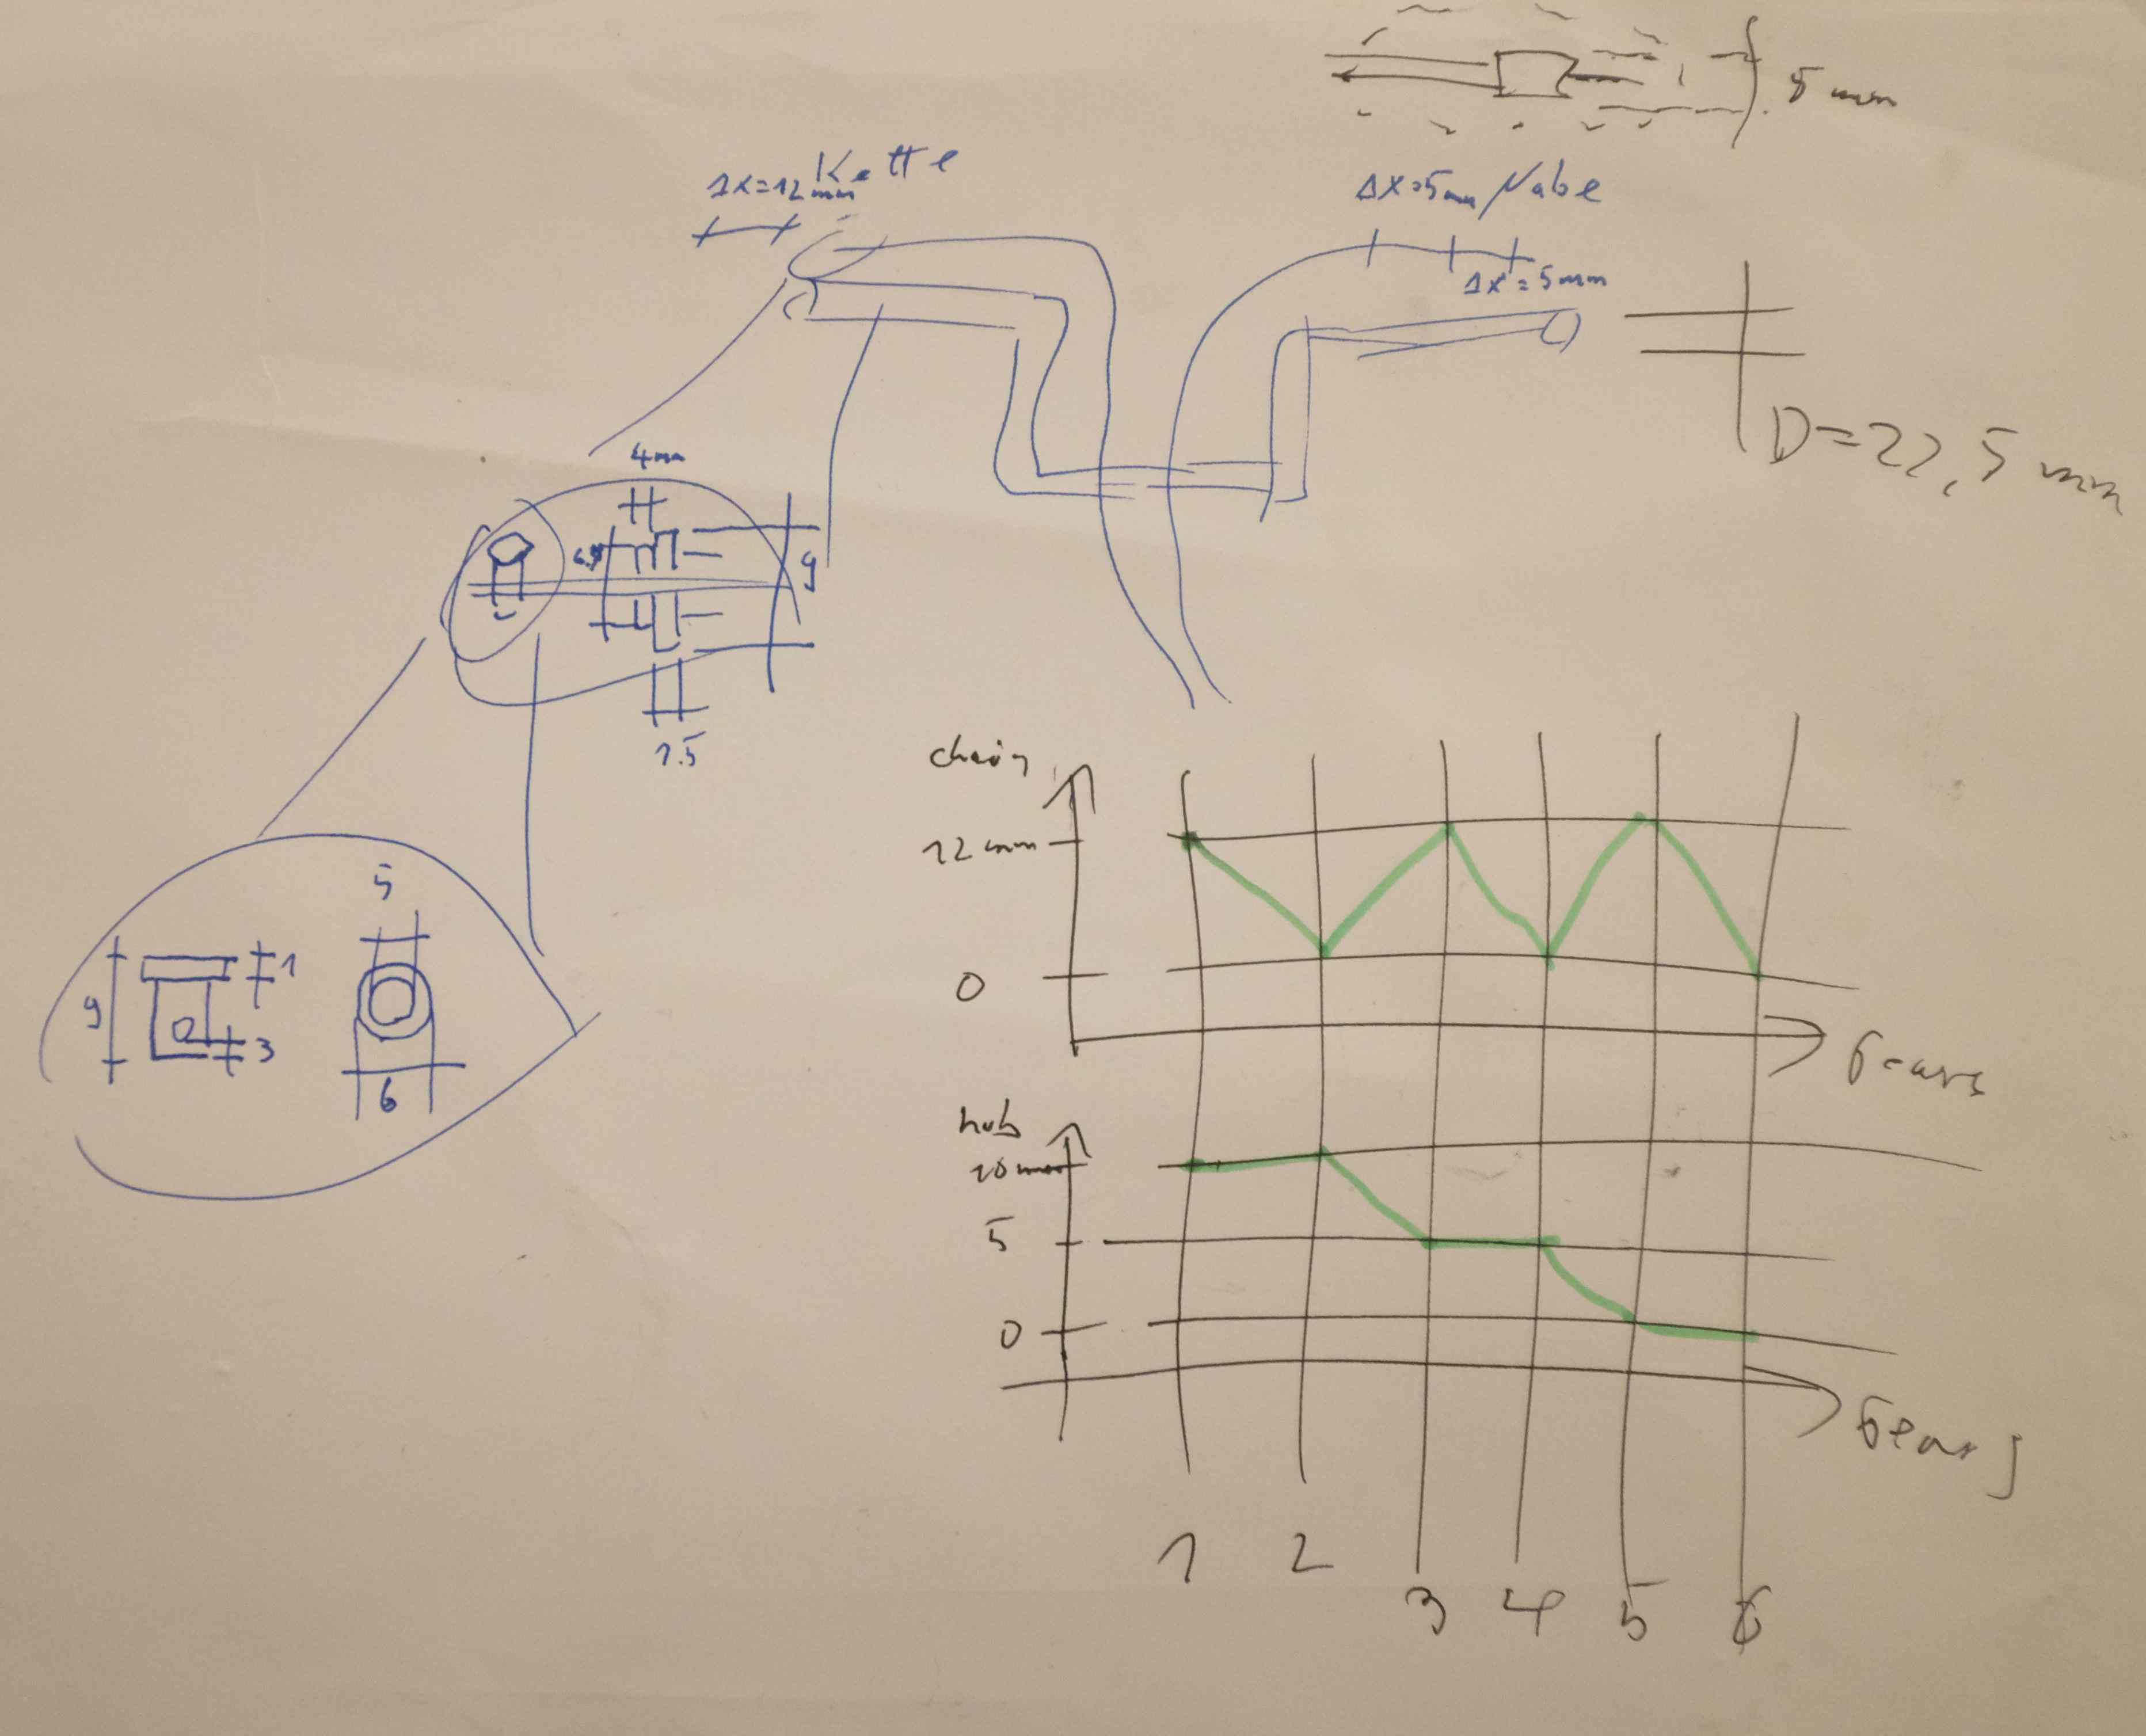 5 mm
Δx=12mm Kette
Δx=5mm Nabe
Δx=5mm
D=22,5 mm
4mm
9
1.5
chain
12 mm
0
Gears
5
9
1
3
6
hub
10 mm
5
0
Gears
1 2 3 4 5 6